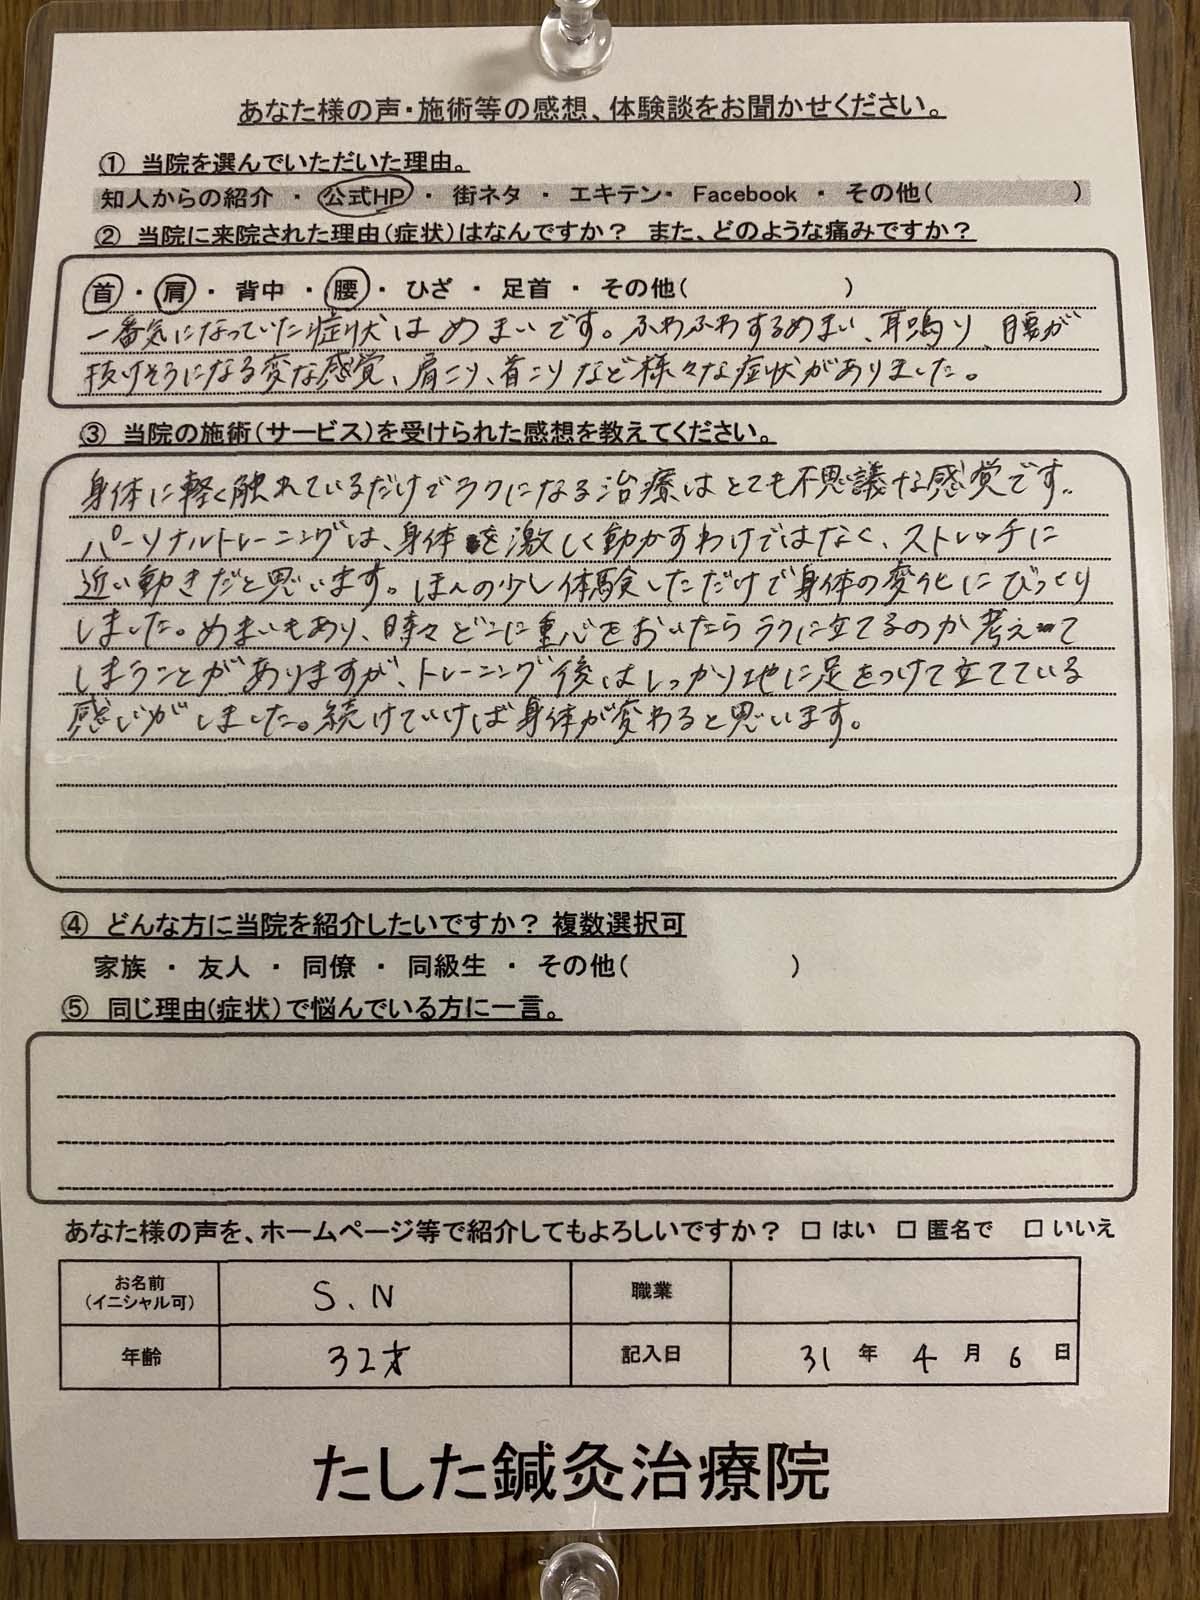 あなた様の声・施術等の感想、体験談をお聞かせください。
① 当院を選んでいただいた理由。
知人からの紹介 ・ 公式HP ・ 街ネタ ・ エキテン・ Facebook ・ その他( )
② 当院に来院された理由(症状)はなんですか? また、どのような痛みですか?
首 ・ 肩 ・ 背中 ・ 腰 ・ ひざ ・ 足首 ・ その他( )
一番気になっていた症状はめまいです。ふわふわするめまい、耳鳴り、腰が
抜けそうになる変な感覚、肩こり、首こりなど様々な症状がありました。
③ 当院の施術(サービス)を受けられた感想を教えてください。
身体に軽く触れているだけでラクになる治療はとても不思議な感覚です。
パーソナルトレーニングは、身体を激しく動かすわけではなく、ストレッチに
近い動きだと思います。ほんの少し体験しただけで身体の変化にびっくり
しました。めまいもあり、時々どこに重心をおいたらラクに立てるのか考えて
しまうことがありますが、トレーニング後はしっかり地に足をつけて立てている
感じがしました。続けていけば身体が変わると思います。
④ どんな方に当院を紹介したいですか? 複数選択可
家族 ・ 友人 ・ 同僚 ・ 同級生 ・ その他( )
⑤ 同じ理由(症状)で悩んでいる方に一言。
あなた様の声を、ホームページ等で紹介してもよろしいですか? □ はい □ 匿名で □ いいえ
お名前
(イニシャル可) S.N 職業
年齢 32才 記入日 31 年 4 月 6 日
たした鍼灸治療院